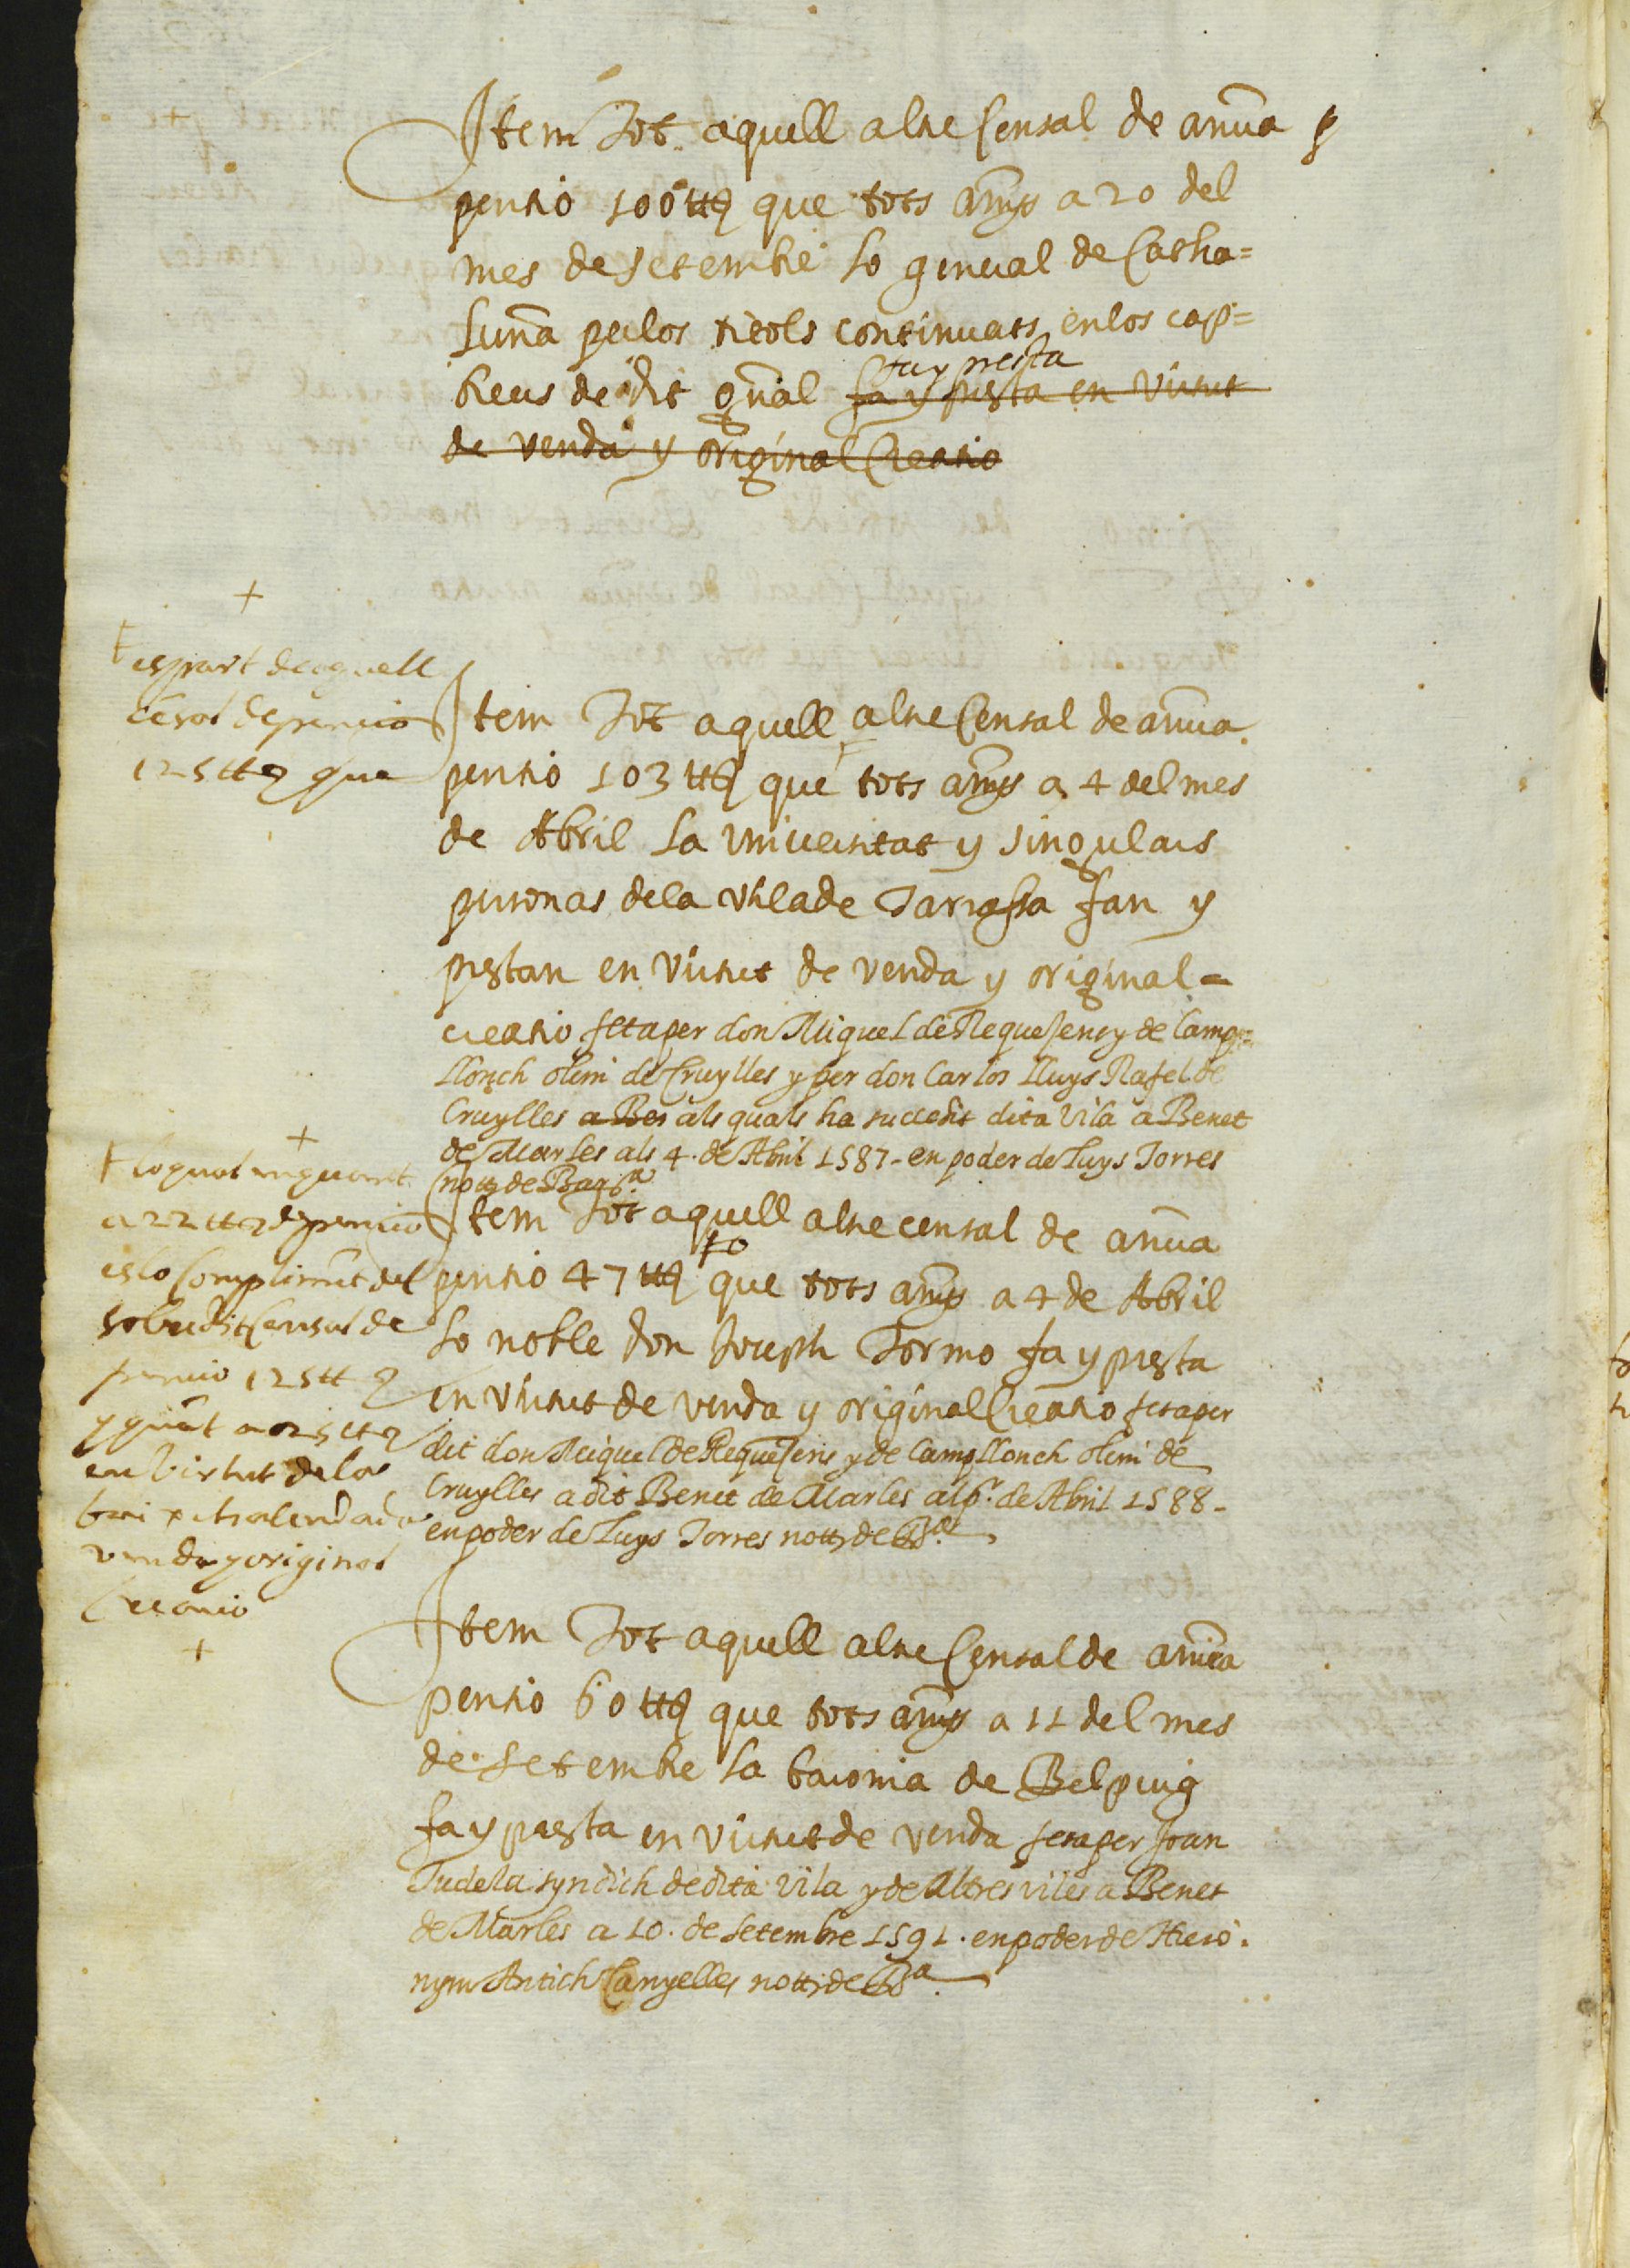 Item Tot aquell altre Censal de anũa p
pensio 100 ₶ que tots añys a 20 del
mes de Setembre lo general de Catha=
luña per los titols continuats en los cap=
breus de dit gñal fa y presta fa y presta en virtut
de venda y original Creatio
+
+ es part de aquell
cẽsal de pencio
125 ₶ que
Item Tot aquell altre Censal de anũa
pensio 103 ₶ que tots añys a 4 del mes
de Abril la Universitat y singulars
personas de la Vila de Tarrassa fan y
prestan en virtut de venda y original =
creatio feta per don Miquel de Requesens y de Camp=
llonch olim de Cruylles y per don Carlos Lluys Rafel de
Cruylles a Ben als quals ha succedit dita Vila a Benet
de Marles als 4. de Abril 1587 - en poder de Luys Torres
nott de Barña
+
+ lo qual en quant
a 22 ₶ de pencio
es lo complimẽt del
sobredit Censal de
pencio 125 ₶
y quãt a 25 ₶
en virtut de la
baix chalendada
venda y original
Creacio
+
Item Tot aquell altre censal de anũa
pensio 47 ₶ 10 que tots añys a 4 de Abril
lo noble don Joseph Tormo fa y presta
en virtut de venda y original Creatio feta per
dit don Miquel de Requesens y de Campllonch olim de
Cruylles a dit Benet de Marles al pr. de Abril 1588 -
en poder de Luys Torres nott de Bª.
Item Tot aquell altre Censal de anũa
pensio 60 ₶ que tots añys a 11 del mes
de Setembre la baronia de Belpuig
fa y presta en virtut de venda feta per Joan
Tudela syndich de dita vila y de altres viles a Benet
de Marles a 10. de Setembre 1591. en poder de Hiero.
nym Antich Canyelles nott de Bª.